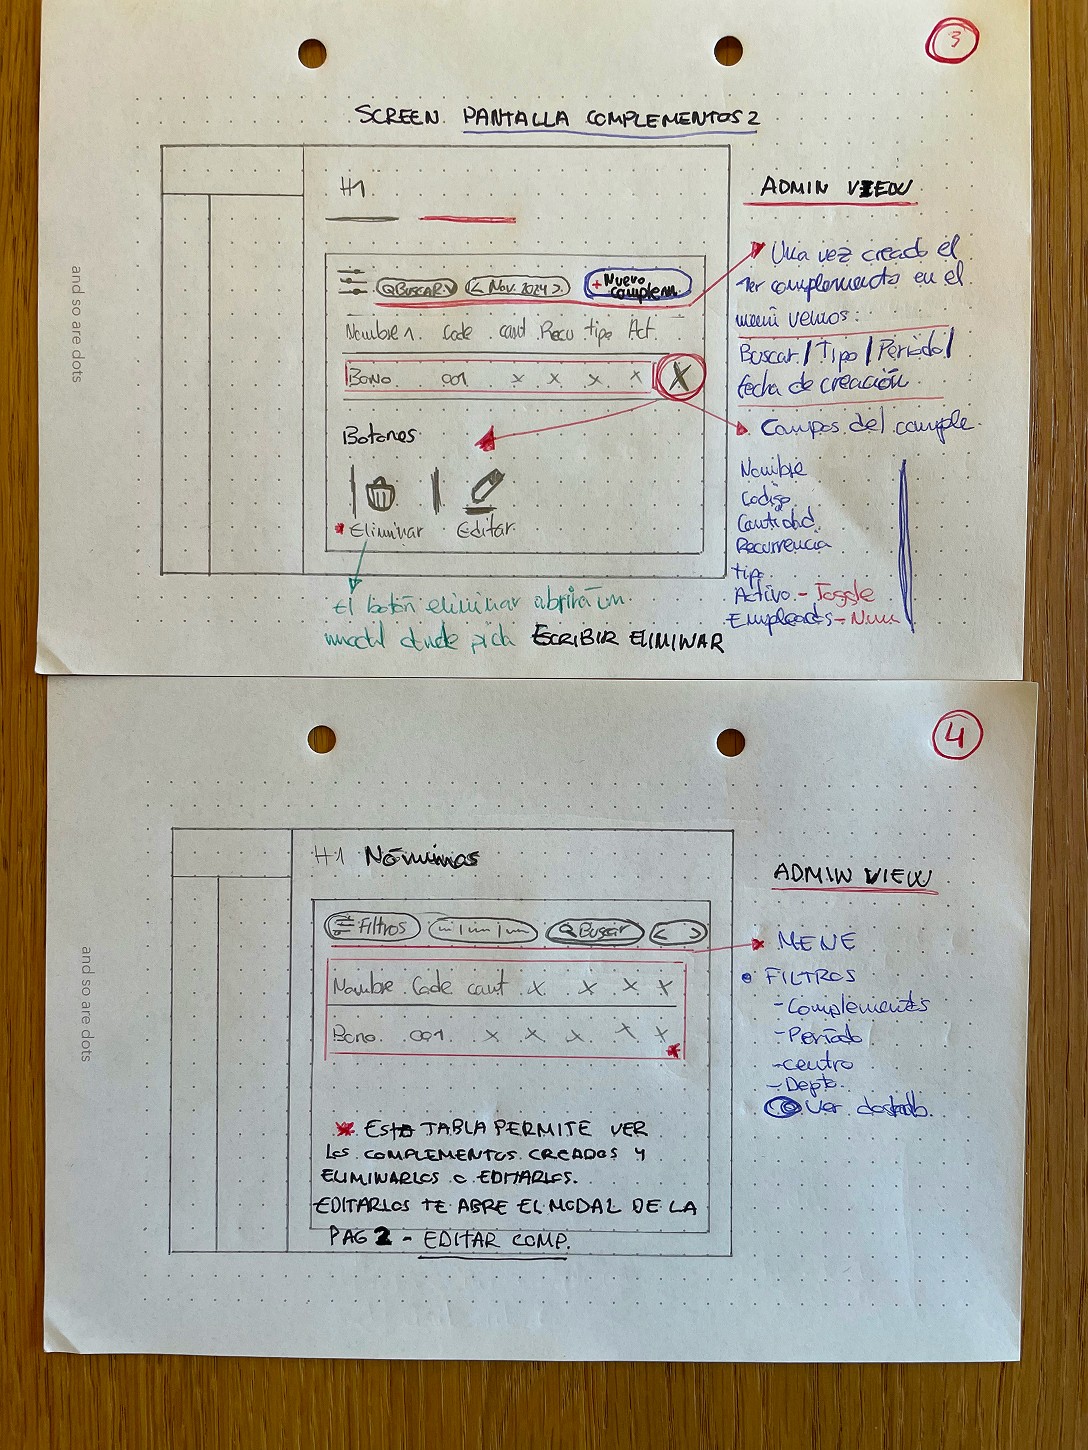 3
SCREEN PANTALLA COMPLEMENTOS 2
ADMIN VIEW
H1
Una vez creado el
1er complemento en el
menú vemos:
Buscar / Tipo / Periodo /
fecha de creación
BUSCAR
< Nov. 2024 >
+ Nuevo
complem.
Nombre 1. Code cant Recu tipo Act.
Bono 001 x x x x X
Campos del comple.
Nombre
Codigo
Cantidad
Recurrencia
tipo
Activo - Toggle
Empleados - Num
Botones
Eliminar Editar
El botón eliminar abrirá un
modal donde pida ESCRIBIR ELIMINAR
and so are dots
4
H1 Nóminas
ADMIN VIEW
Filtros
Buscar
< >
MENÉ
FILTROS
- Complementos
- Periodo
- centro
- Depto.
Ver
Nombre Code cant x x x x
Bono. 001 x x x x x
ESTA TABLA PERMITE VER
LOS COMPLEMENTOS CREADOS Y
ELIMINARLOS O EDITARLOS.
EDITARLOS TE ABRE EL MODAL DE LA
PAG 2 - EDITAR COMP.
and so are dots